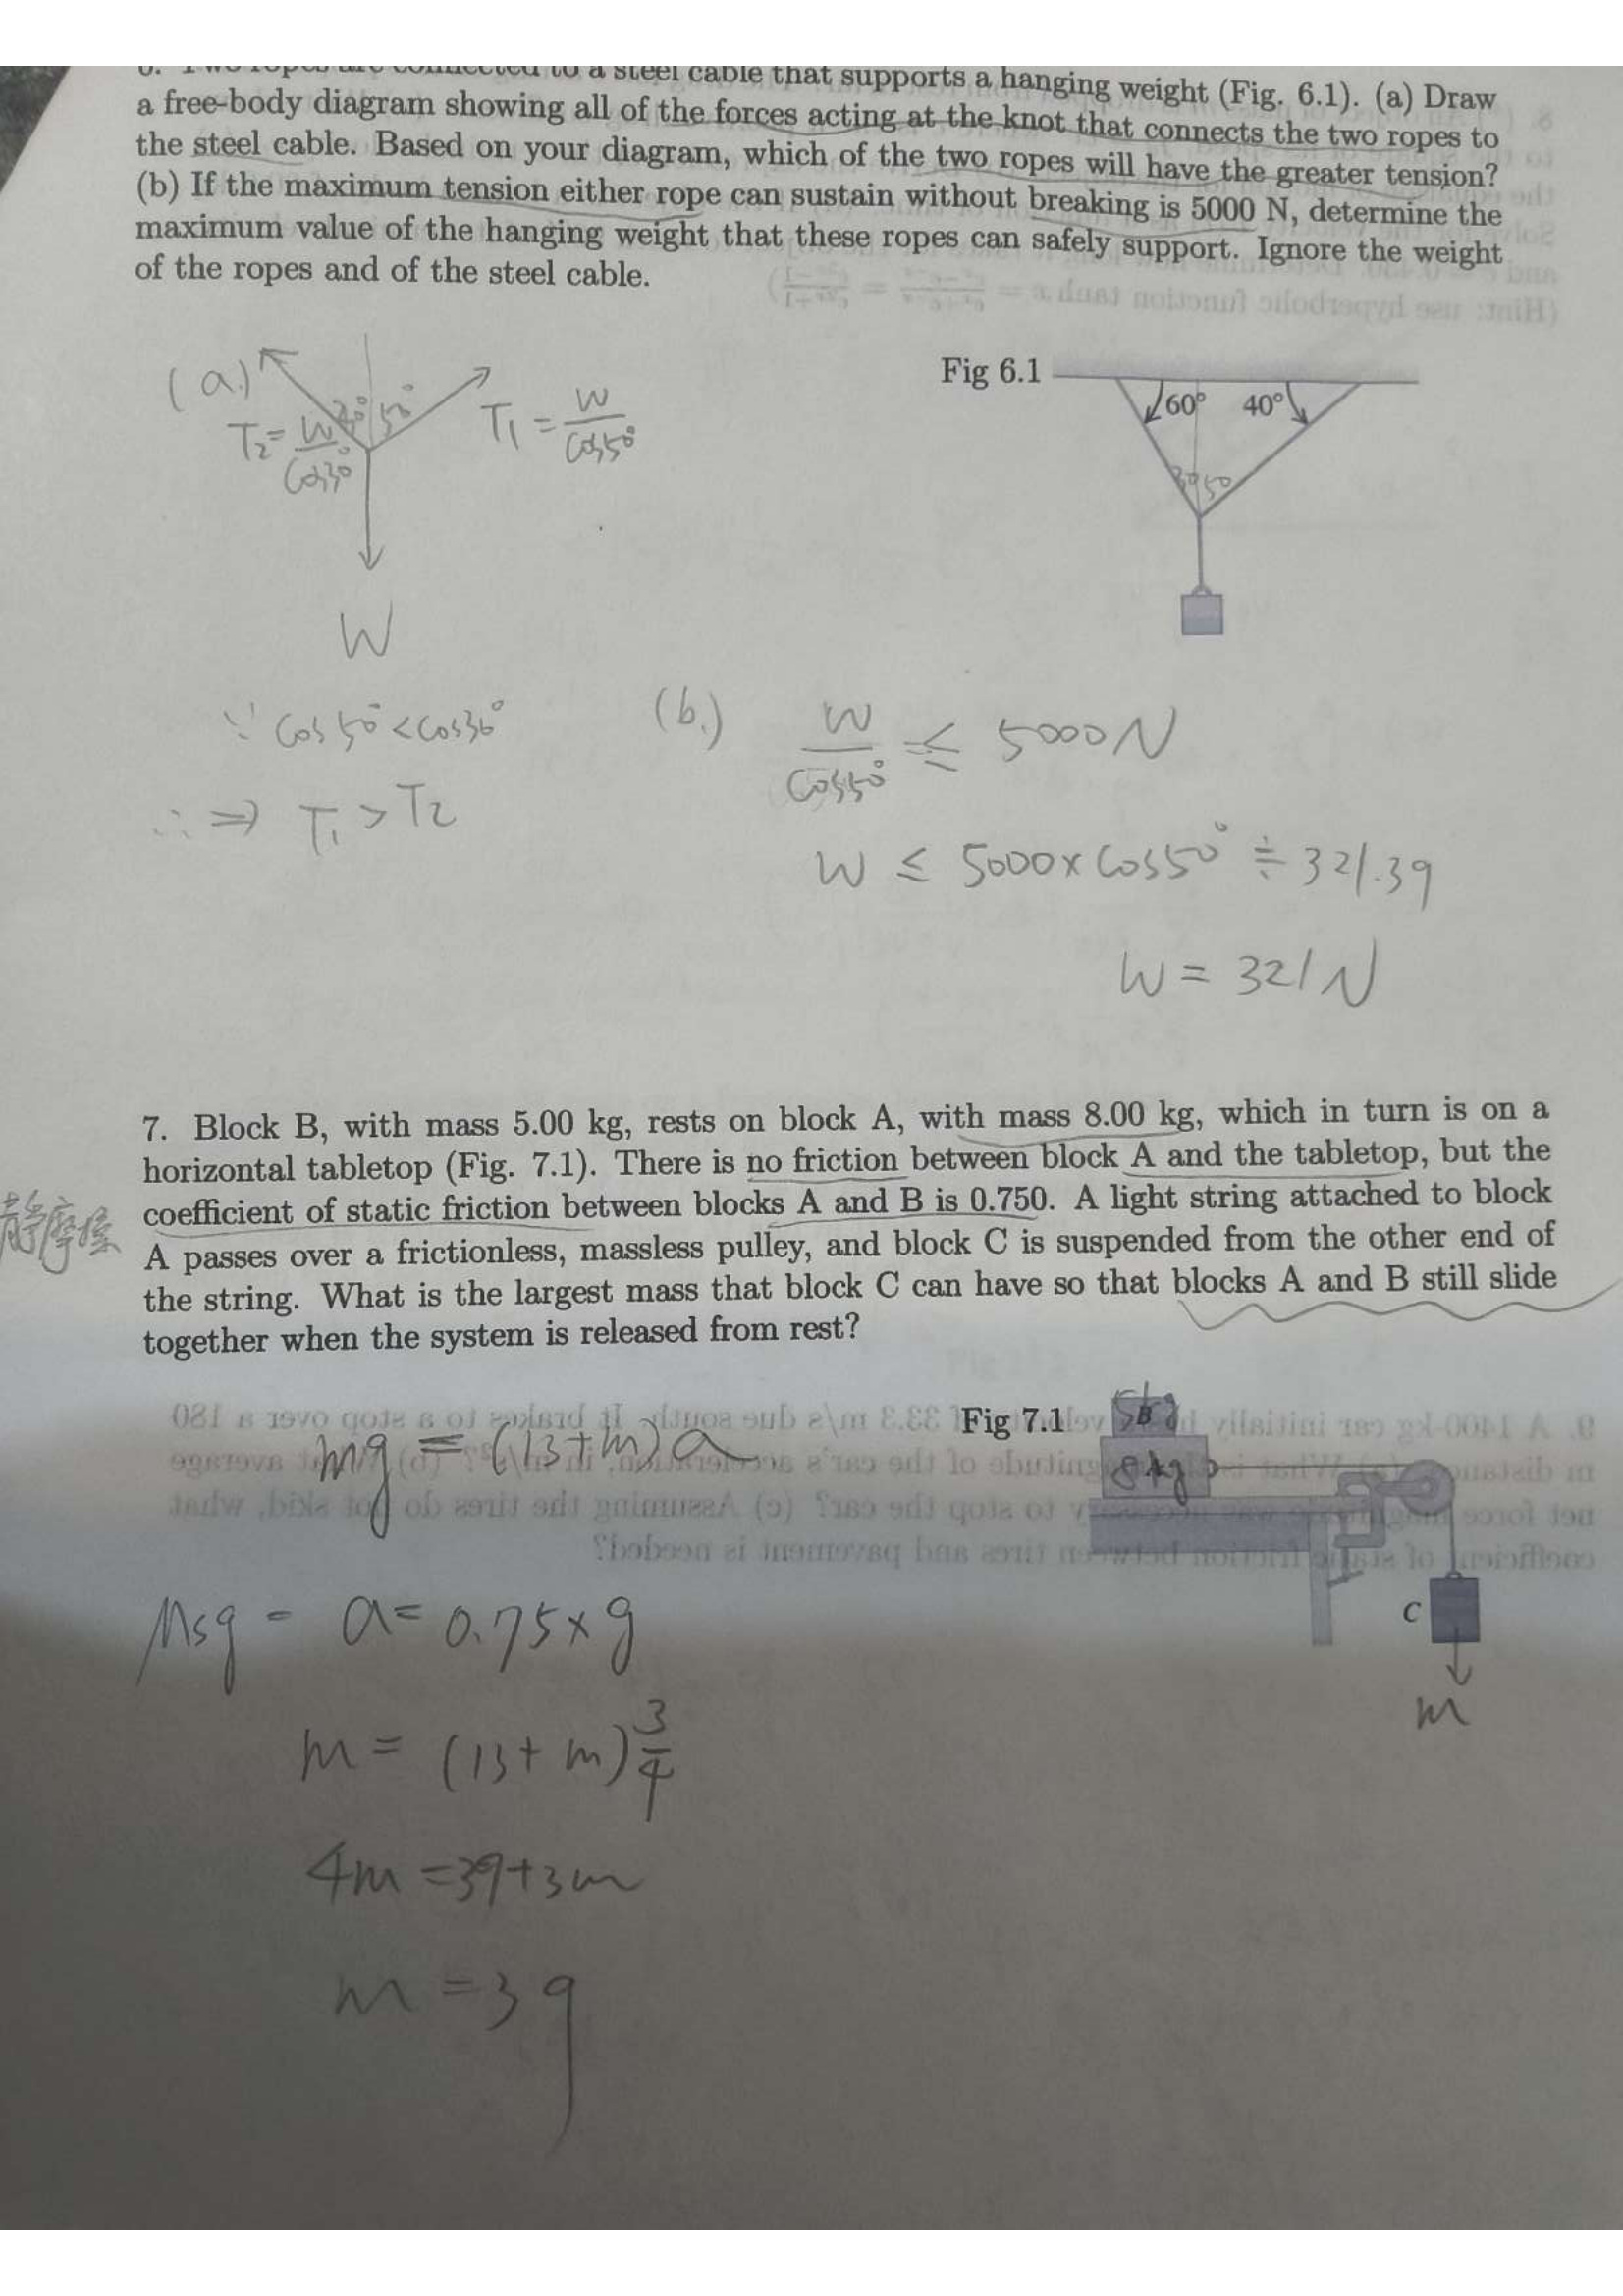 6. Two ropes are connected to a steel cable that supports a hanging weight (Fig. 6.1). (a) Draw
a free-body diagram showing all of the forces acting at the knot that connects the two ropes to
the steel cable. Based on your diagram, which of the two ropes will have the greater tension?
(b) If the maximum tension either rope can sustain without breaking is 5000 N, determine the
maximum value of the hanging weight that these ropes can safely support. Ignore the weight
of the ropes and of the steel cable.
(a.)
T₂ = W/cos30°
30° 50°
T₁ = W/cos50°
W
Fig 6.1
60° 40°
30 50
∵ cos50° < cos30°
∴ ⇒ T₁ > T₂
(b.) W/cos50° ≤ 5000 N
W ≤ 5000 × cos50° ≑ 321.39
W = 321 N
7. Block B, with mass 5.00 kg, rests on block A, with mass 8.00 kg, which in turn is on a
horizontal tabletop (Fig. 7.1). There is no friction between block A and the tabletop, but the
coefficient of static friction between blocks A and B is 0.750. A light string attached to block
静摩擦
A passes over a frictionless, massless pulley, and block C is suspended from the other end of
the string. What is the largest mass that block C can have so that blocks A and B still slide
together when the system is released from rest?
Fig 7.1
5kg B
8kg
C
m
mg = (13+m)a
μsg = a = 0.75 × g
m = (13+m) 3/4
4m = 39+3m
m = 39